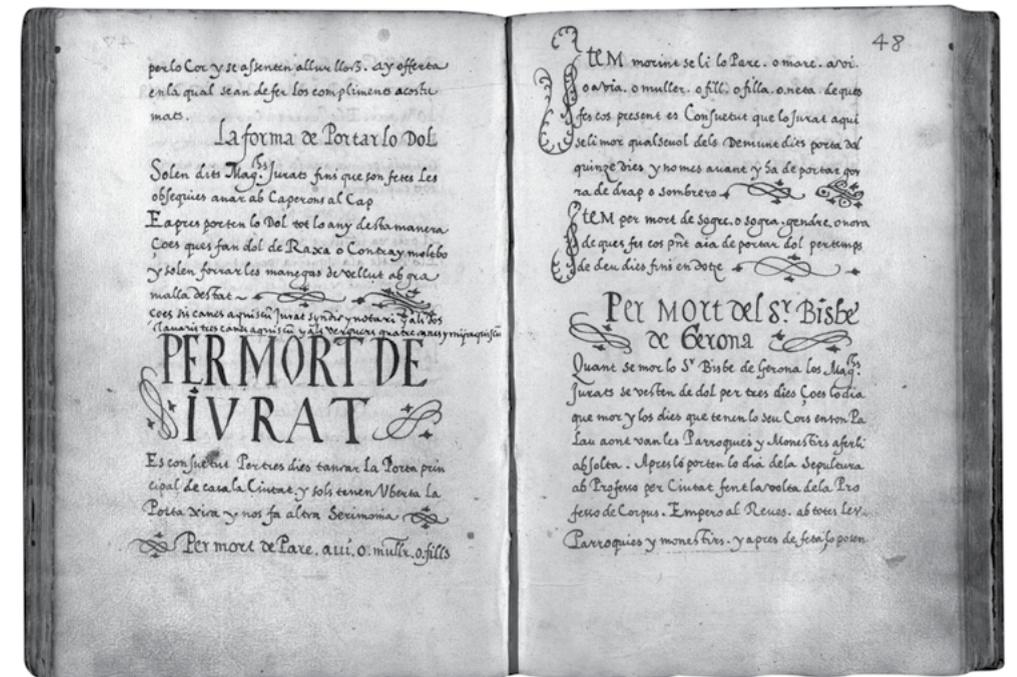 per lo Cor y se assenten a llur lloch. ay offerta
en la qual se an de fer los compliments acostu
mats.
La forma de Portar lo Dol
Solen dits Mag.chs Jurats fins que son fetes Les
obsequies anar ab Caperons al Cap
E apres porten lo Dol tot lo any desta manera
Çoes ques fan dol de Raxa o Contray molt bo
y solen forrar les manegas de vellut ab gra
malla destat ~
coes sis canes a quiscu Jurat syndic y notari y als dos
clavaris tres canes a quiscu y als verguers quatre canes y mija a quiscu
PER MORT DE
IVRAT
Es consuetut Per tres dies tancar La Porta prin
cipal de casa la Ciutat, y sols tenen Uberta La
Porta xica y nos fa altra Serimonia
Per mort de Pare, avi, o, mullr, o, fills
48
Item morint se li lo Pare. o mare. avi.
o avia. o muller. o fill. o filla. o neta. de ques
fes cos present es Consuetut que lo Jurat a qui
se li mor qualsevol dels Demunt dits porta dol
quinze dies y no mes avant y ha de portar gor
ra de drap o sombrero
Item per mort de sogre. o sogra. gendre. o nora
de ques fes cos pnt aia de portar dol per temps
de deu dies fins en dotze
Per Mort del Sr. Bisbe
de Gerona
Quant se mor lo Sr Bisbe de Gerona los Mag.chs
Jurats se vesten de dol per tres dies Çoes lo dia
que mor y los dies que tenen lo seu Cors en son Pa
Lau a ont van les Parroquies y Monestirs a ferli
absolta. Apres lo porten lo dia de la Sepultura
ab Professo per Ciutat fent la volta de la Pro
fesso de Corpus. Empero al Reves. ab totes Les
Parroquies y monestirs. y apres de feta lo posen